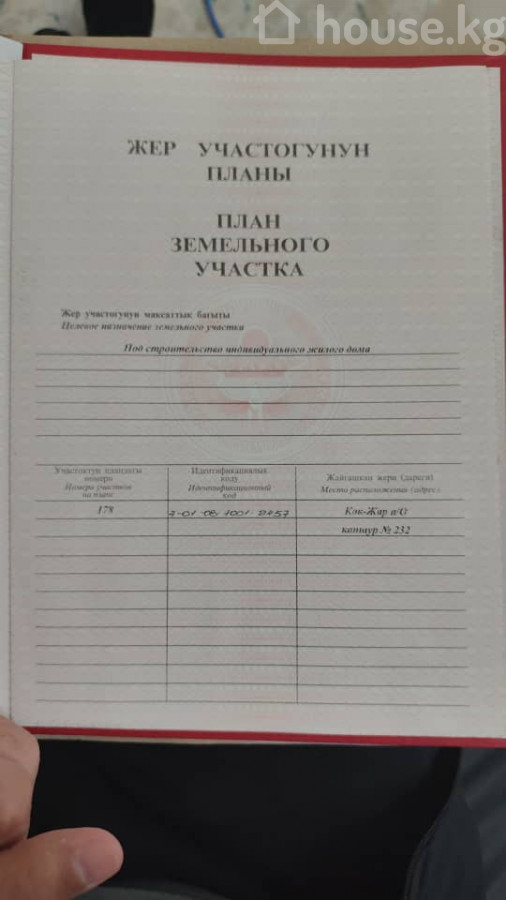 house.kg
ЖЕР УЧАСТОГУНУН
ПЛАНЫ
ПЛАН
ЗЕМЕЛЬНОГО
УЧАСТКА
Жер участогунун максаттык багыты
Целевое назначение земельного участка
Под строительство индивидуального жилого дома
Участоктун пландагы
номери
Номера участков
на плане
Идентификациялык
коду
Идентификационный
код
Жайгашкан жери (дареги)
Место расположения (адрес)
178
Кок-Жар а/О
контур № 232